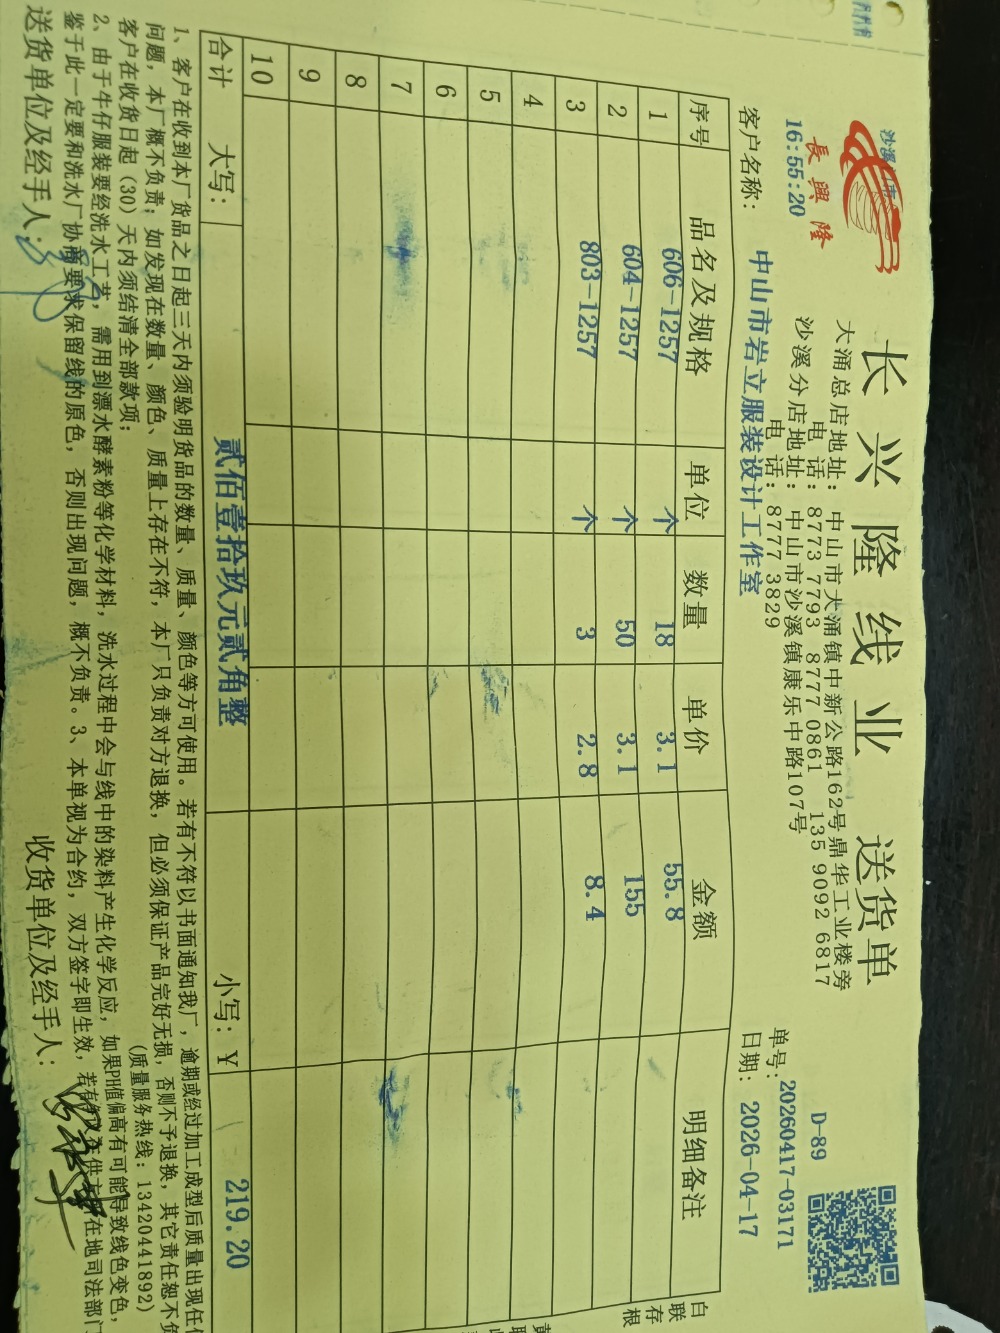 长兴隆线业 送货单
D-89
長興隆
16:55:20
大涌总店地址：中山市大涌镇中新公路162号鼎华工业楼旁
电 话：8773 7793 8777 0861 135 9092 6817
沙溪分店地址：中山市沙溪镇康乐中路107号
电 话：8777 3829
单号：20260417-03171
客户名称：中山市岩立服装设计工作室
日期：2026-04-17
序号 品名及规格 单位 数量 单价 金额 明细备注
1 606-1257 个 18 3.1 55.8
2 604-1257 个 50 3.1 155
3 803-1257 个 3 2.8 8.4
4
5
6
7
8
9
10
合计 大写：贰佰壹拾玖元贰角整 小写：￥ 219.20
白
联
存
根
1、客户在收到本厂货品之日起三天内须验明货品的数量、质量、颜色等方可使用。若有不符以书面通知我厂，逾期或经过加工成型后质量出现任
问题，本厂概不负责；如发现在数量、颜色、质量上存在不符，本厂只负责对方退换，但必须保证产品完好无损，否则不予退换，其它责任恕不负
客户在收货日起（30）天内须结清全部款项；
(质量服务热线：13420441892)
2、由于牛仔服装要经洗水工艺，需用到漂水酵素粉等化学材料，洗水过程中会与线中的染料产生化学反应，如果PH值偏高有可能导致线色变色，
鉴于此一定要和洗水厂协商要求保留线的原色，否则出现问题，概不负责。3、本单视为合约，双方签字即生效，若有 供方所在地司法部门
送货单位及经手人：
收货单位及经手人：